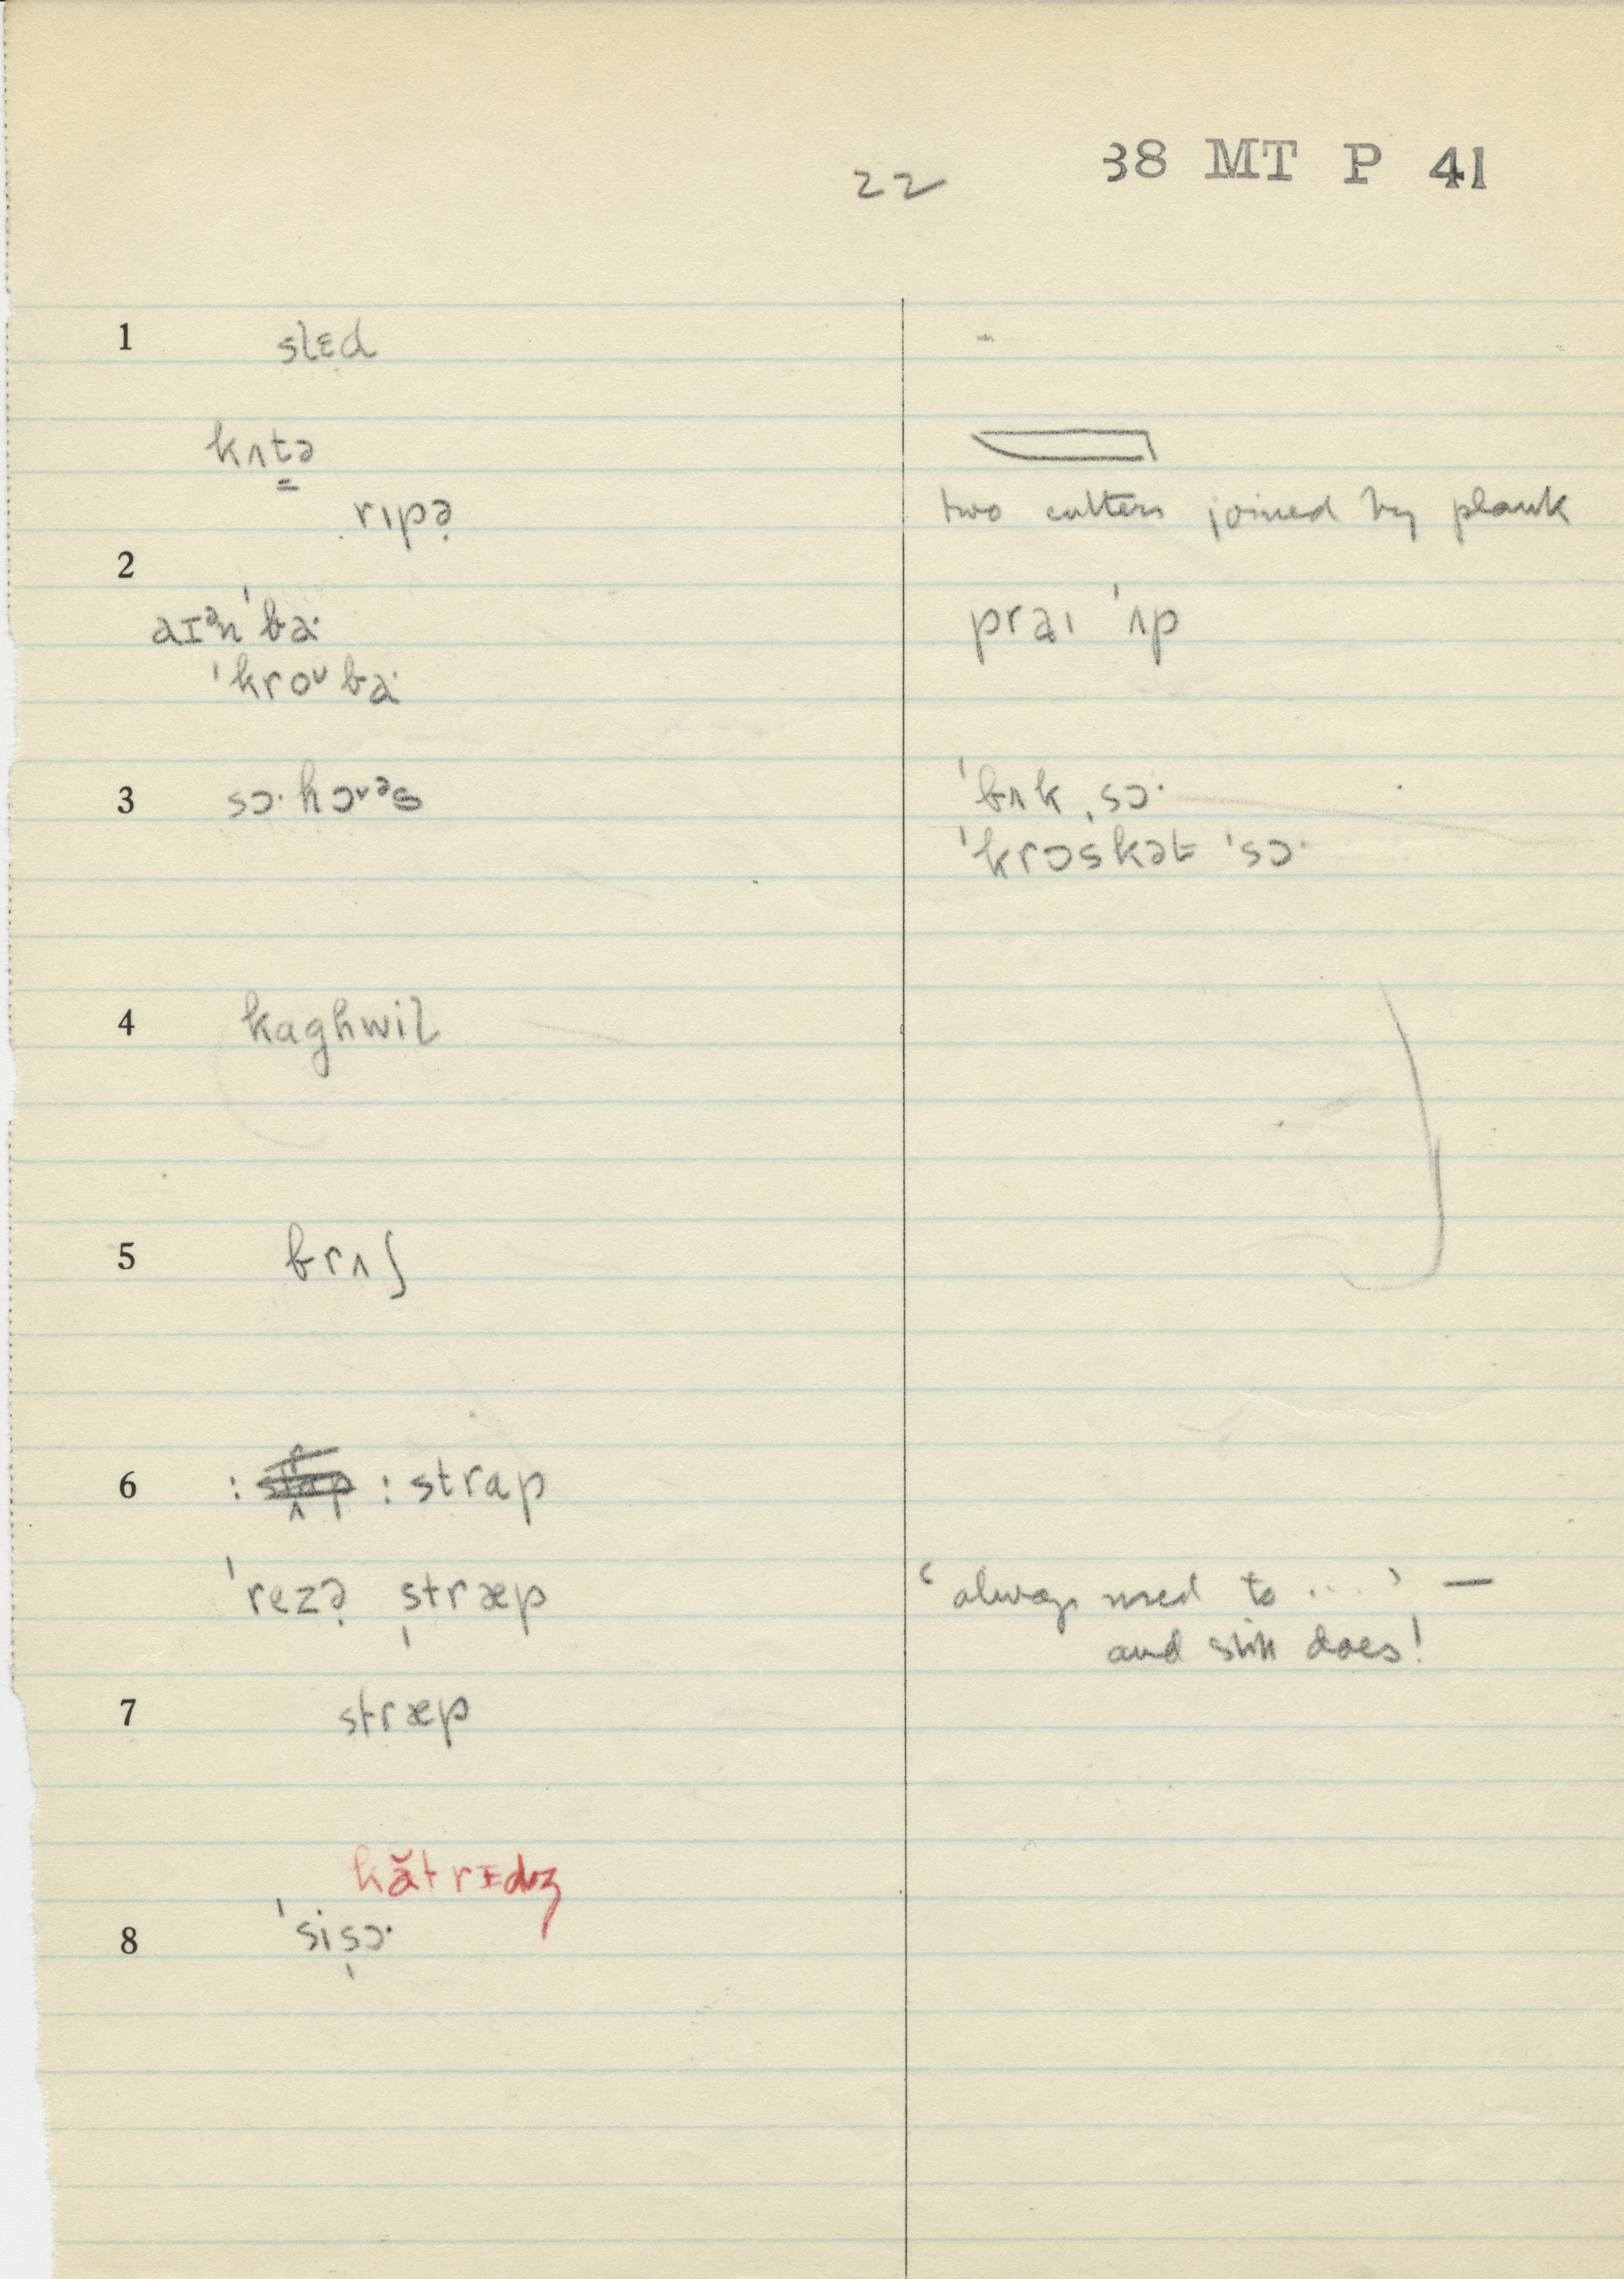 22 38 MT P 41
1 slɛd -
kʌt̳ə
rɪpə̣ two cutters joined by plank
2
aɪᵊn ˈba· praɪ ˈʌp
ˈkroᴜba·
3 sɔ·hɔᵛᵊs ˈbʌkˌsɔ·
ˈkrɔskət ˈsɔ·
4 kaghwil
5 brʌʃ
6 : : strap
ˈrezə̣ ˌstræp ‘always used to ...’ —
and still does!
7 stræp
kătrɪdʒ
8 ˈsiˌsɔ·